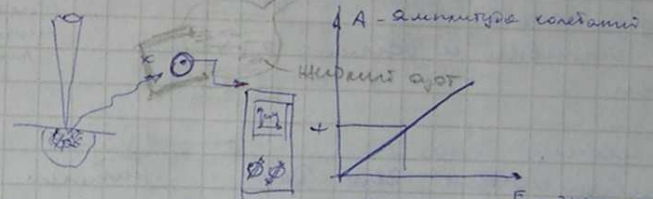 A - Амплитуда колебаний
жидкий азот
E